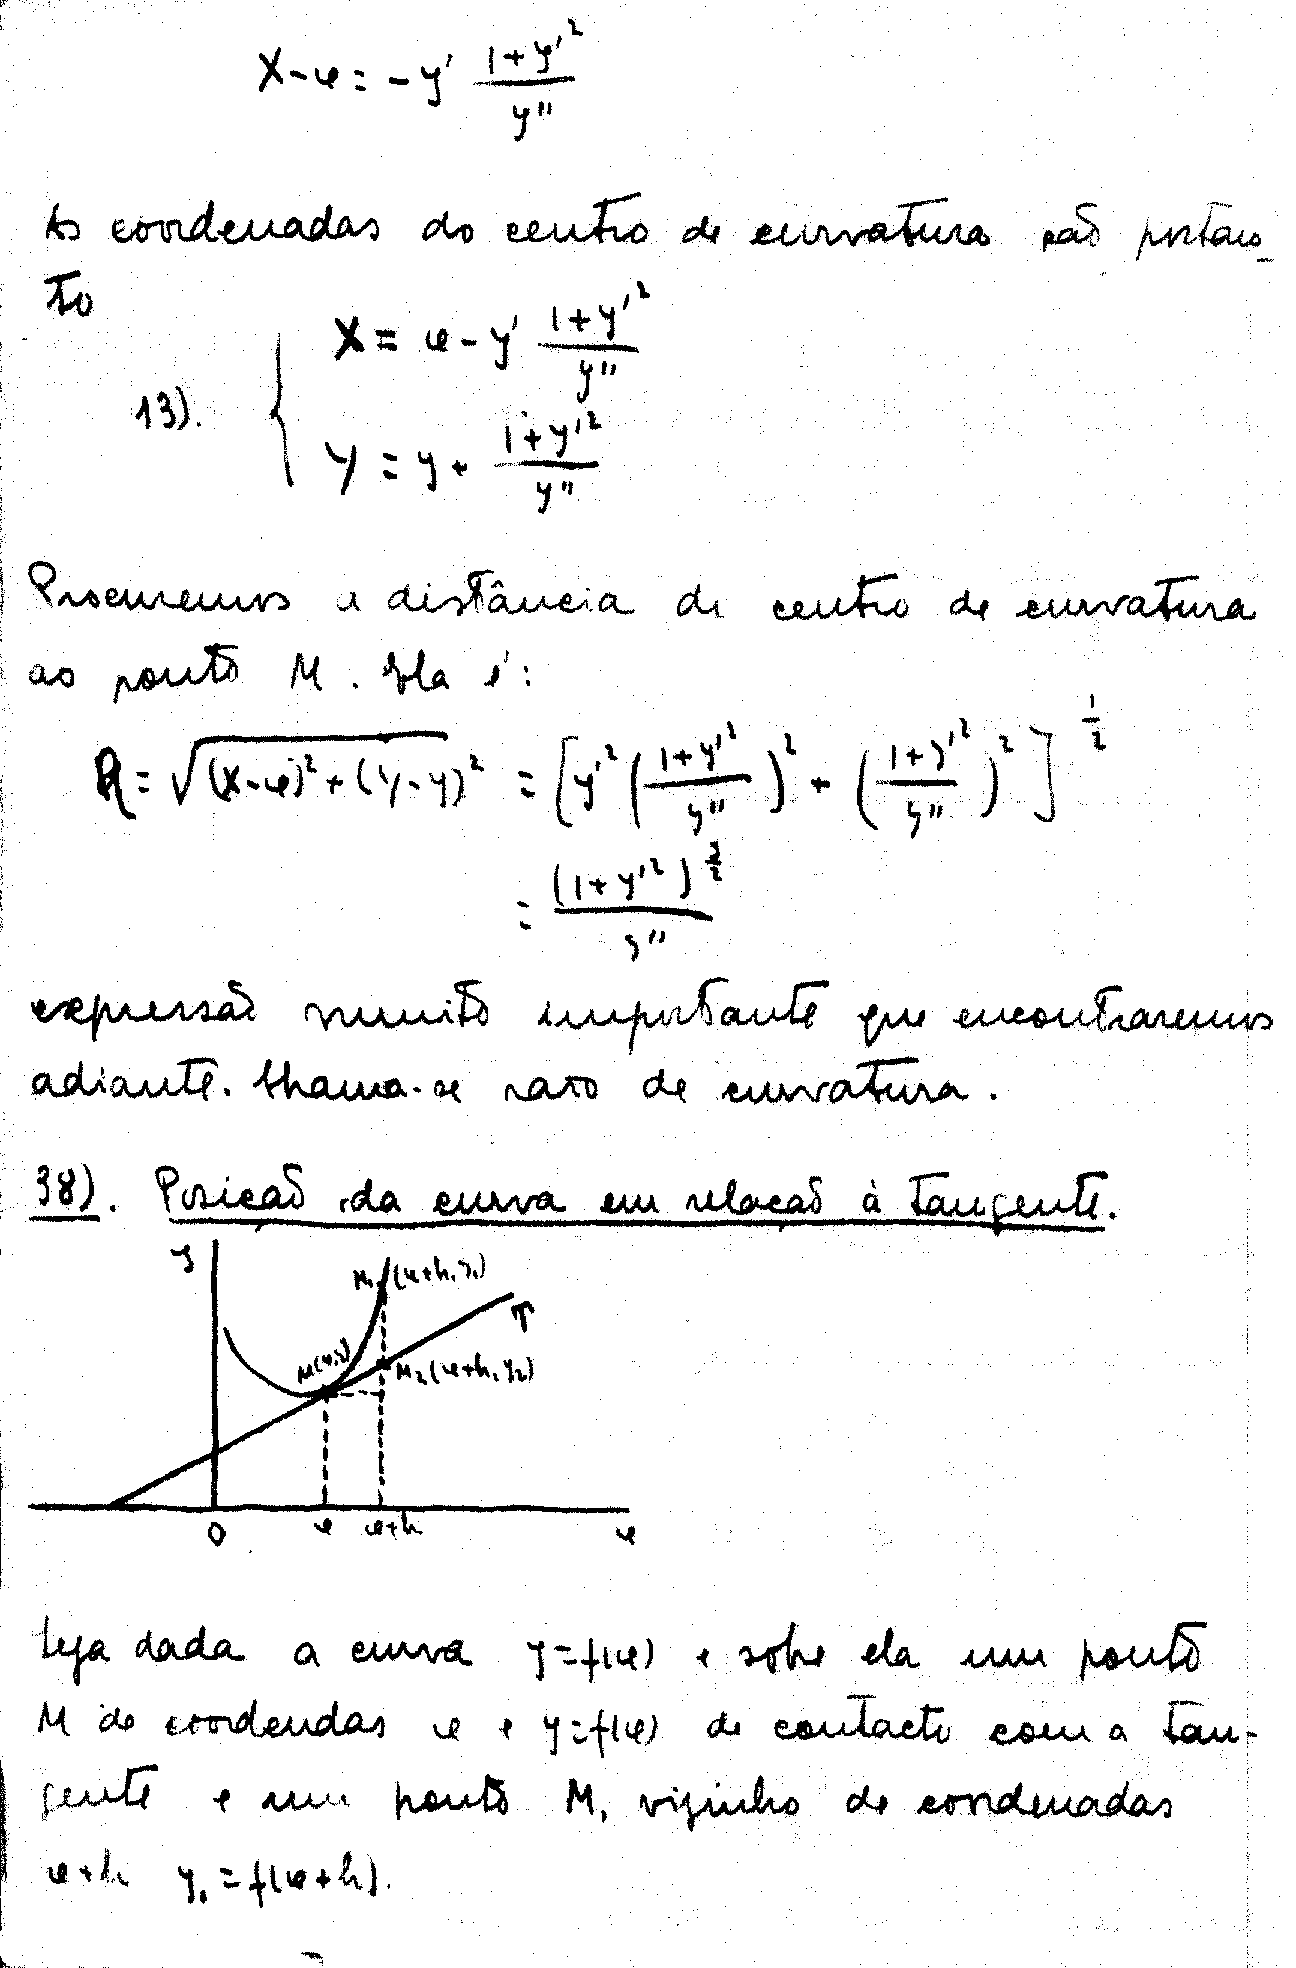 X-x = -y' (1+y'²)/y''
As coordenadas do centro de curvatura são portan-
to
13). { X = x - y' (1+y'²)/y''
Y = y + (1+y'²)/y''
Procuremos a distância do centro de curvatura
ao ponto M. Ela é:
R = √(X-x)²+(Y-y)² = [y'²((1+y'²)/y'')² + ((1+y'²)/y'')²]^(1/2)
= (1+y'²)^(3/2)/y''
expressão muito importante que encontraremos
adiante. Chama-se raio de curvatura.
38). Posicão da curva em relacão à tangente.
y
M₁(x+h, y₁)
T
M(x,y)
M₂(x+h, y₂)
0 x x+h x
Seja dada a curva y=f(x) e sobre ela um ponto
M de coordendas x e y=f(x) de contacto com a tan-
gente e um ponto M₁ vizinho de coordenadas
x+h y₁=f(x+h).